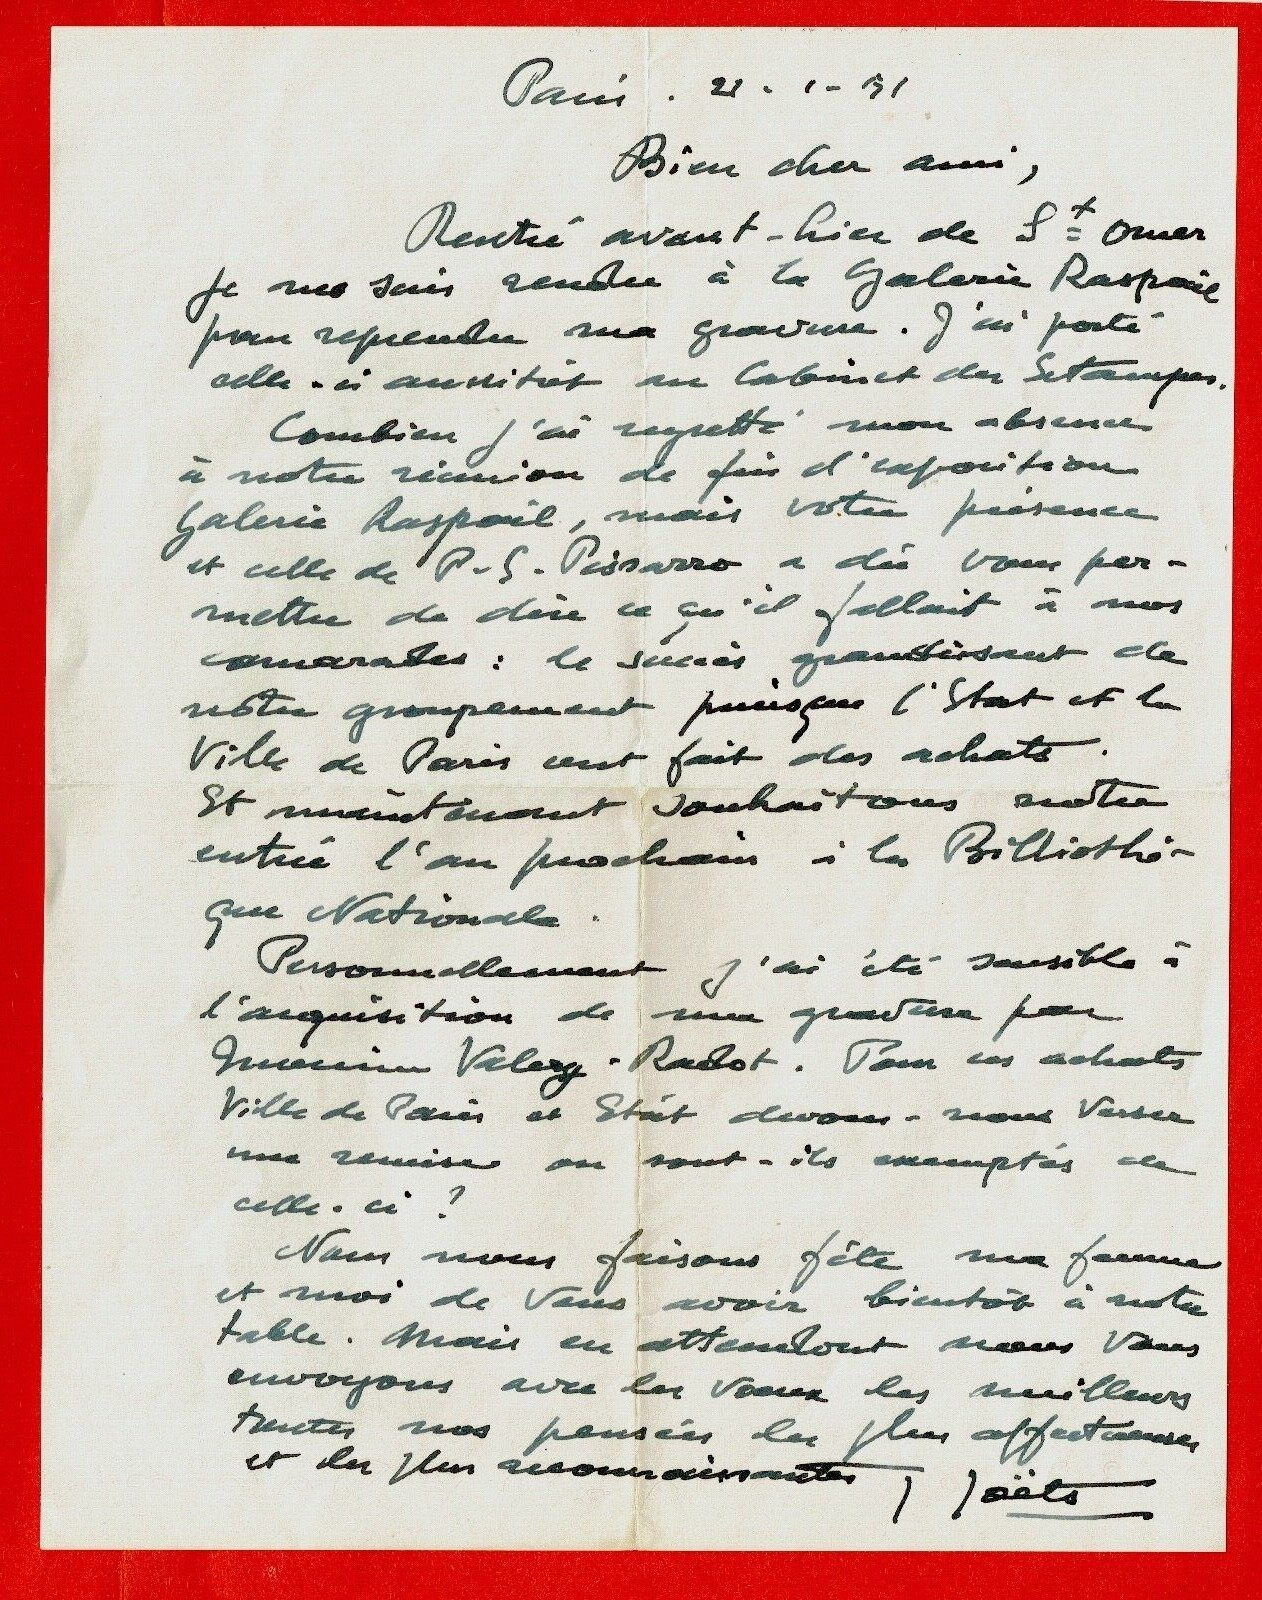 Paris . 21 - 1 - 51
Bien cher ami,
Rentré avant-hier de St Omer
je me suis rendu à la Galerie Raspail
pour reprendre ma gravure. J'ai porté
celle-ci aussitôt au Cabinet des Estampes.
Combien j'ai regretté mon absence
à notre réunion de fin d'exposition
Galerie Raspail, mais votre présence
et celle de P-E-Pissarro a dû vous per-
mettre de dire ce qu'il fallait à nos
camarades : le succès grandissant de
notre groupement puisque l'Etat et la
Ville de Paris ont fait des achats.
Et maintenant souhaitons notre
entrée l'an prochain à la Bibliothè-
que Nationale.
Personnellement j'ai été sensible à
l'acquisition de ma gravure par
Monsieur Valery-Radot. Pour ces achats
Ville de Paris et Etat devons-nous verser
une remise ou sont-ils exemptés de
celle-ci ?
Nous nous faisons fête ma femme
et moi de vous avoir bientôt à notre
table. Mais en attendant nous vous
envoyons avec les vœux les meilleurs
toutes nos pensées les plus affectueuses
et les plus reconnaissantes J Joëts